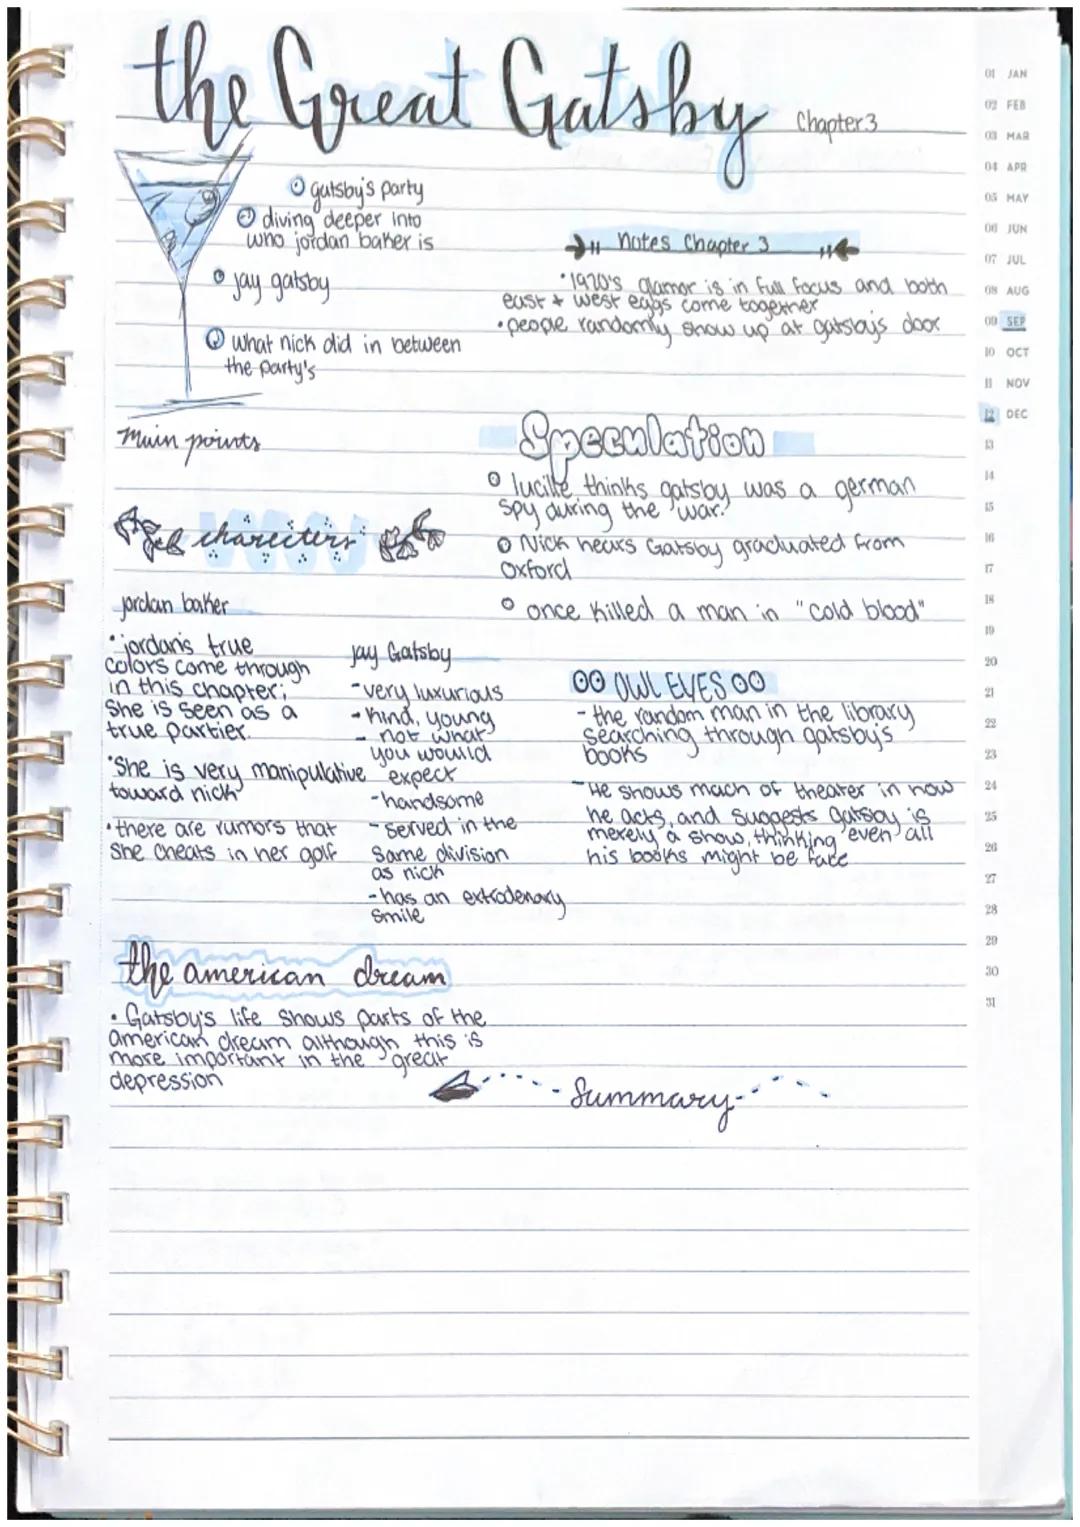 the Great Gatsby
Chapter 3
gatsby's party
diving deeper into
who jordan baker is
jay gatsby
what nick did in between
the party's
Main points
Notes Chapter 3
• 1920's glamor is in full focus and both
east + west eggs come together
• people randomly show up at gatsby's door
Speculation
lucille thinks gatsby was a german
spy during the war.
Nick hears Gatsby graduated from
Oxford
once killed a man in "cold blood"
charecters
jordan baker
• jordan's true
colors come through
in this chapter;
She is seen as a
true partier.
• She is very manipulative
toward nick
• there are rumors that
she cheats in her golf
jay Gatsby
- very luxurious
- kind, young
- not what
you would
expect
- handsome
- served in the
same division
as nick
- has an extrodenary
smile
OWL EYES
- the random man in the library
searching through gatsby's
books
- He shows mach of theater in how
he acts, and suggests gatsby is
merely a show, thinking even all
his books might be face
the american dream
• Gatsby's life shows parts of the
american dream although this is
more important in the great
depression
Summary
01 JAN
02 FEB
03 MAR
04 APR
05 MAY
06 JUN
07 JUL
08 AUG
09 SEP
10 OCT
11 NOV
12 DEC
13
14
15
16
17
18
19
20
21
22
23
24
25
26
27
28
29
30
31